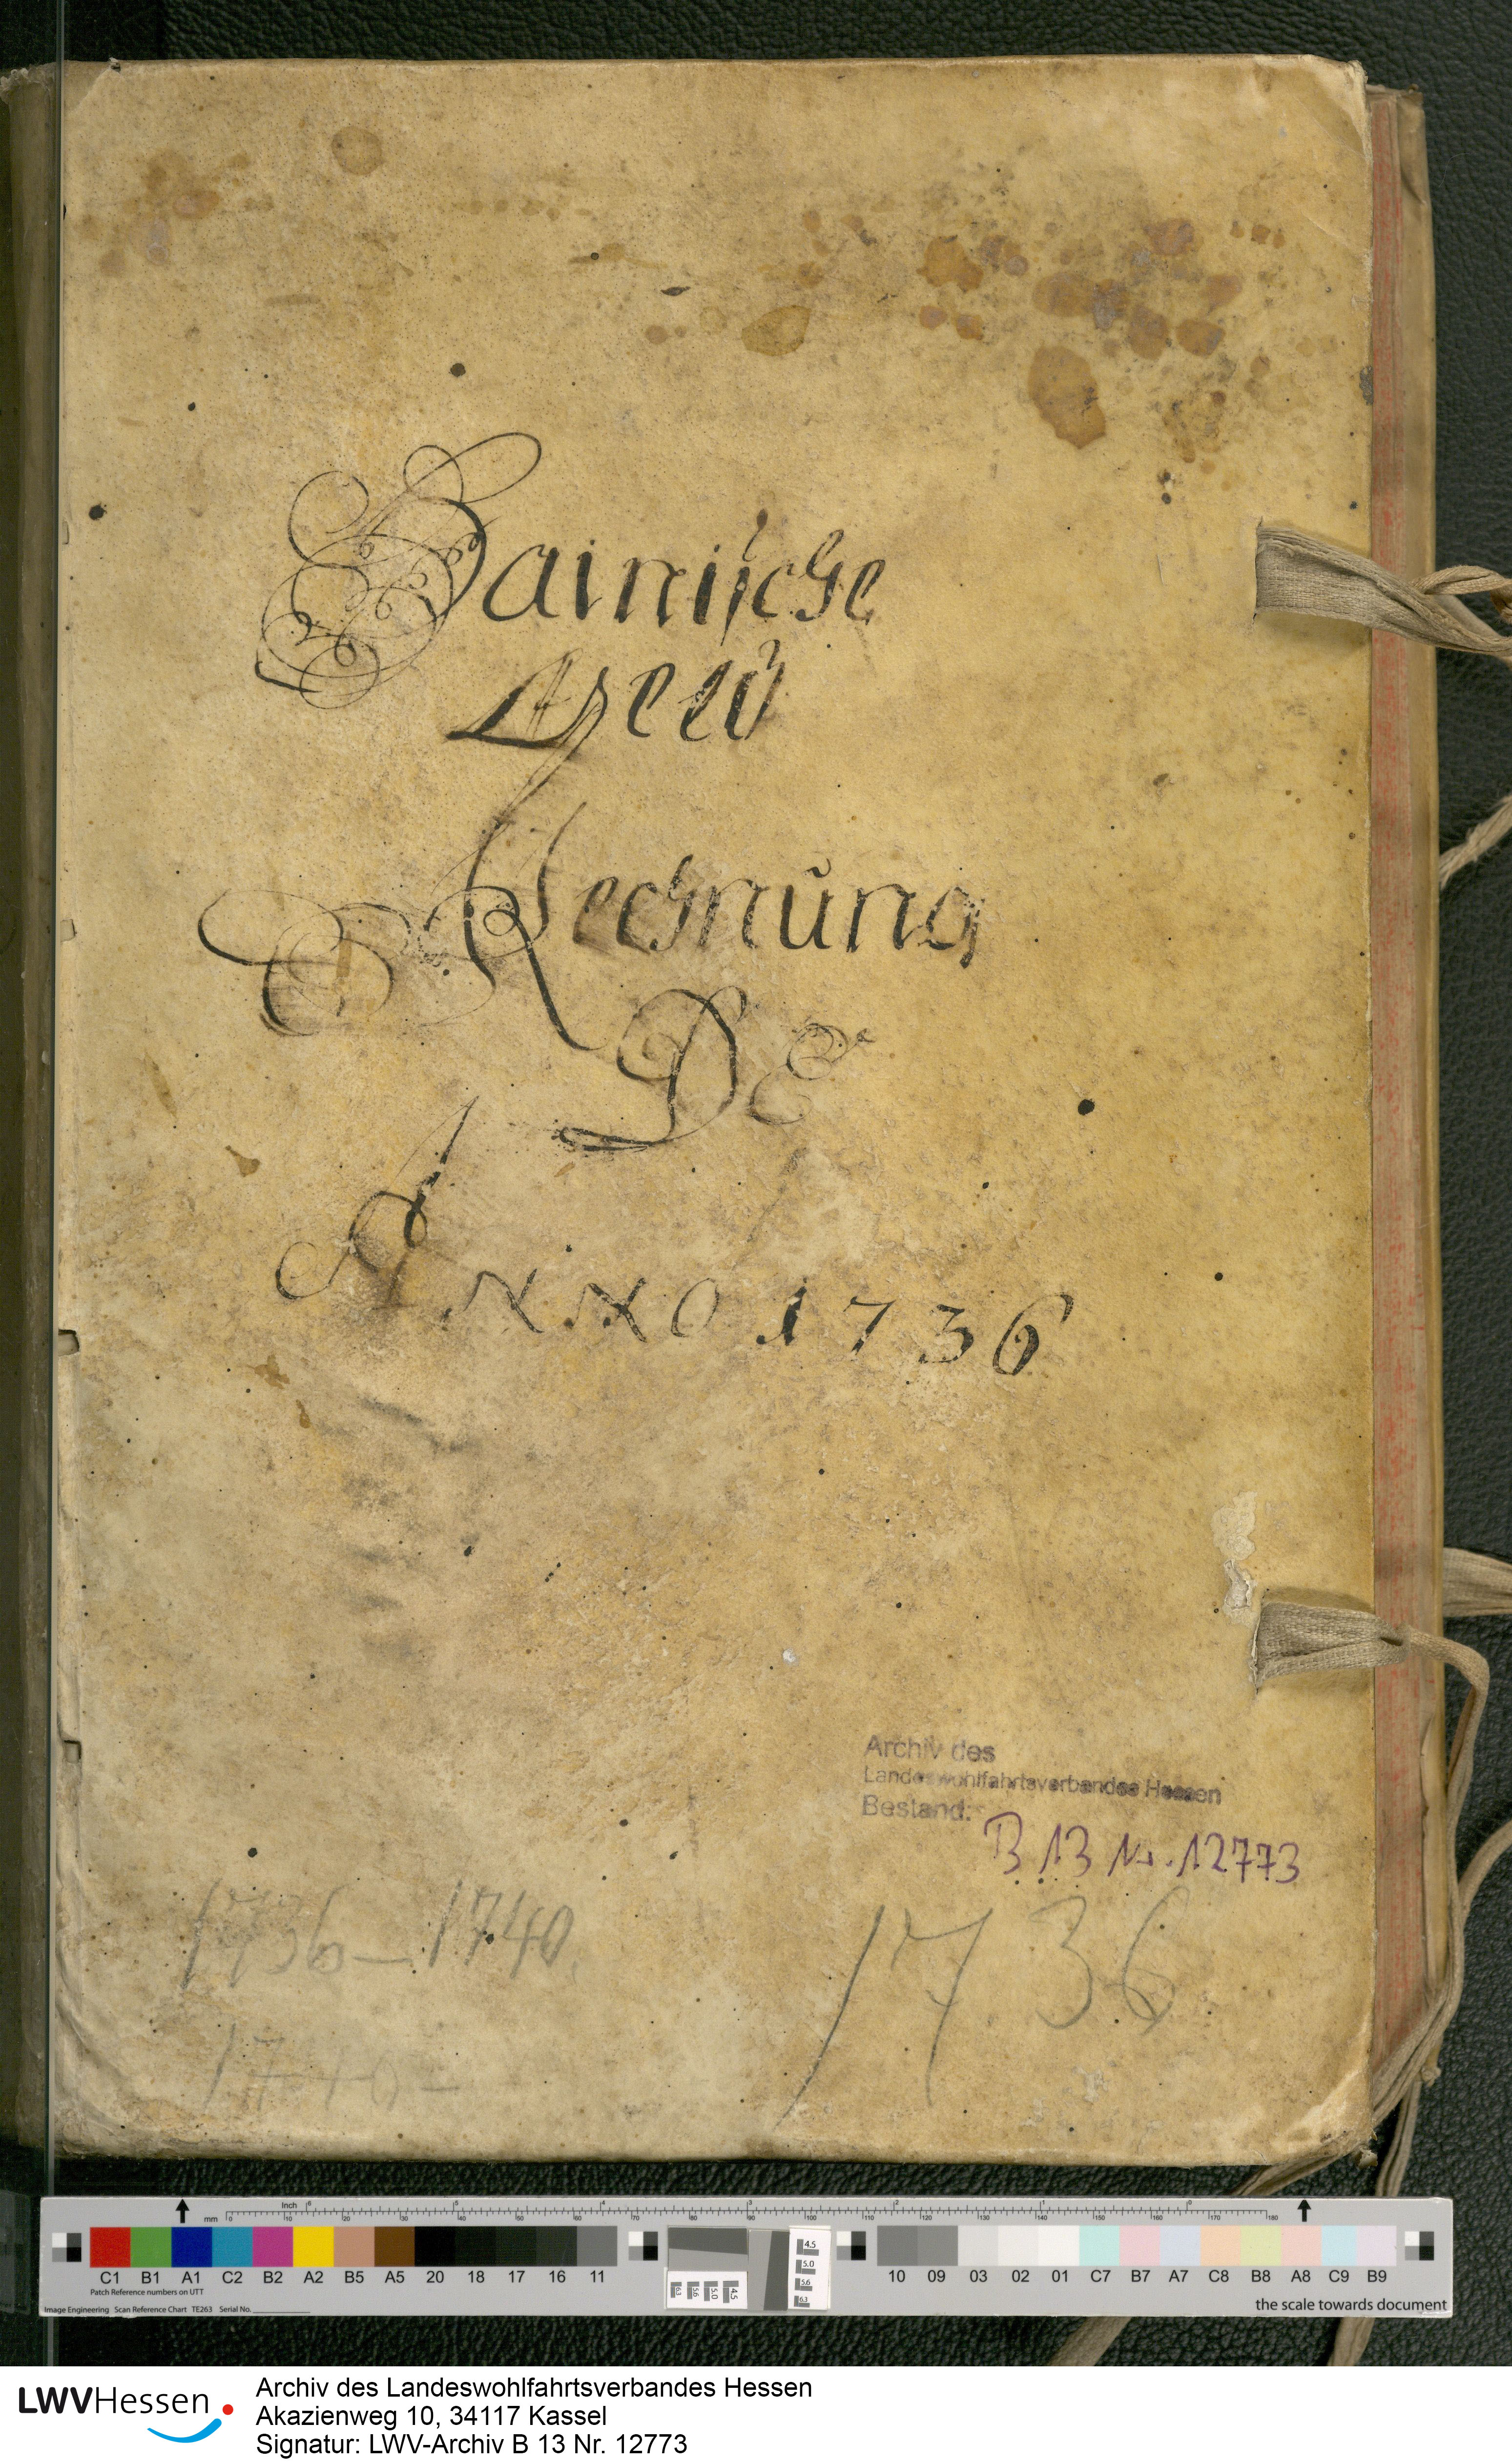 Hainische
Geld
Rechnŭng
De
ANNO 1736
Archiv des
Landeswohlfahrtsverbandes Hessen
Bestand:
B 13 Nr. 12773
1736 — 1740.
1736
1740 –
Inch
mm
C1 B1 A1 C2 B2 A2 B5 A5 20 18 17 16 11
10 09 03 02 01 C7 B7 A7 C8 B8 A8 C9 B9
Patch Reference numbers on UTT
Image Engineering Scan Reference Chart TE263 Serial No.
the scale towards document
LWVHessen
Archiv des Landeswohlfahrtsverbandes Hessen
Akazienweg 10, 34117 Kassel
Signatur: LWV-Archiv B 13 Nr. 12773